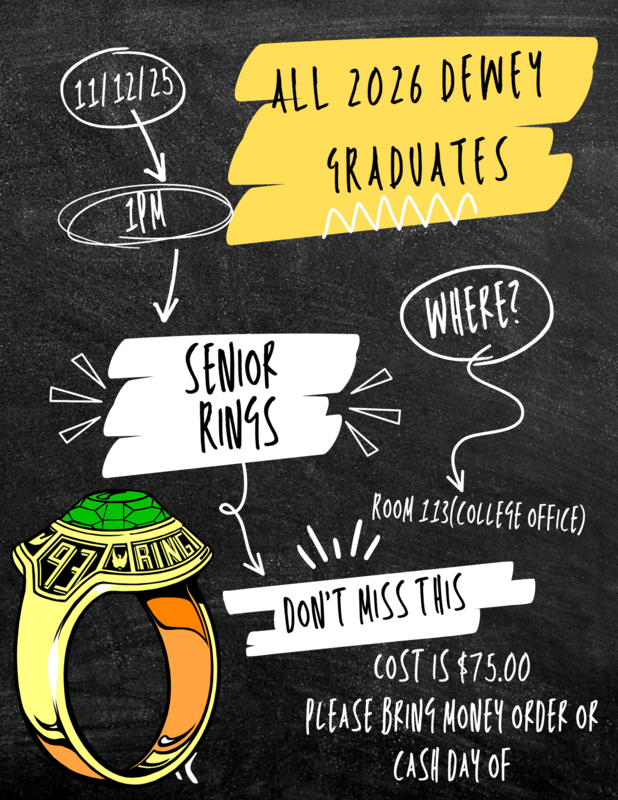 11/12/25
ALL 2026 DEWEY
GRADUATES
1PM
WHERE?
SENIOR
RINGS
ROOM 113(COLLEGE OFFICE)
93 RING
DON'T MISS THIS
COST IS $75.00
PLEASE BRING MONEY ORDER OR
CASH DAY OF